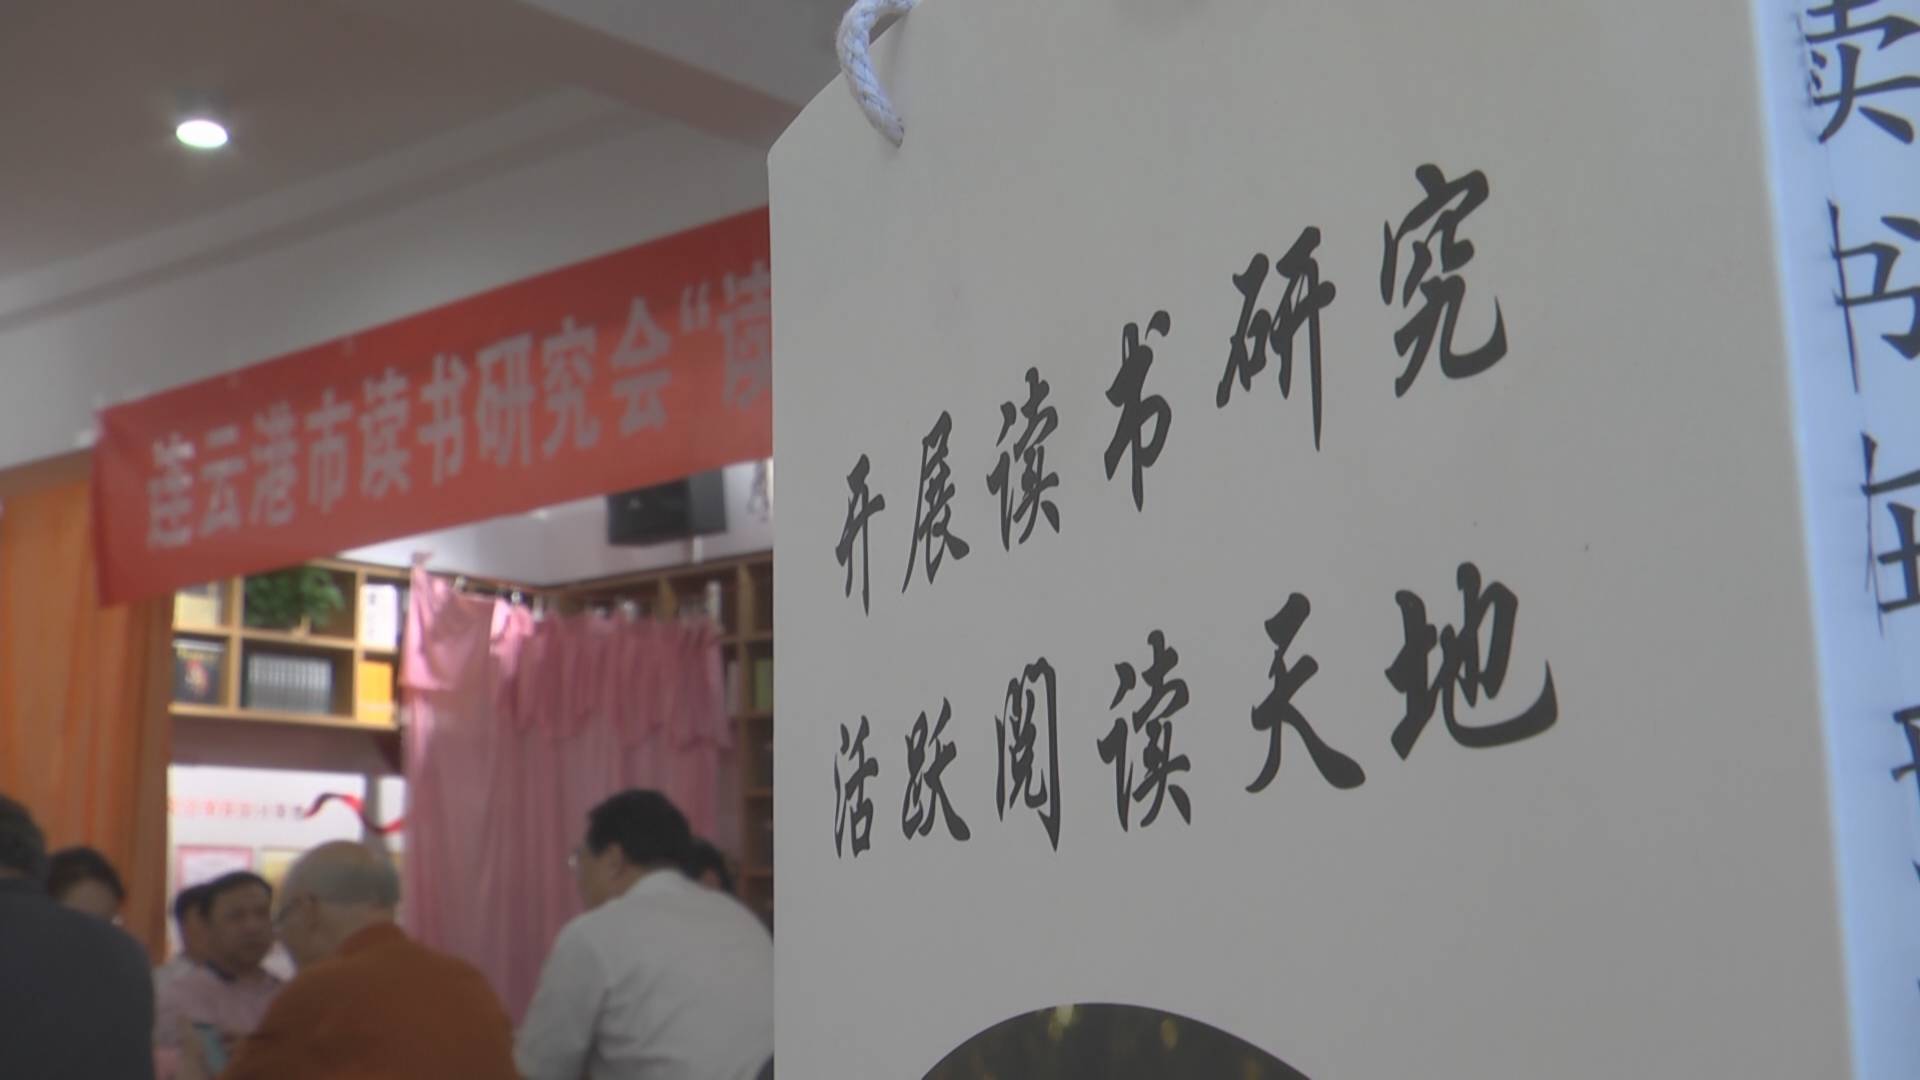 连云港市读书研究会“读
开展读书研究
活跃阅读天地
读书